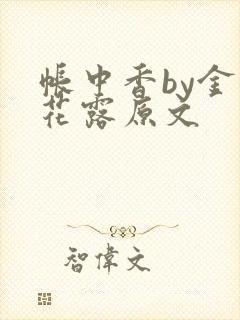 帐中香by金
花露原文
智偉文